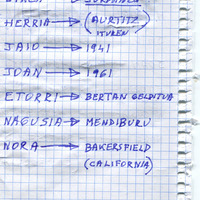 HERRIA → (AURTITZ
ITUREN)
JAIO → 1941
JOAN → 1961
ETORRI → BERTAN GELDITUA
NAGUSIA → MENDIBURU
NORA → BAKERSFIELD
(CALIFORNIA)